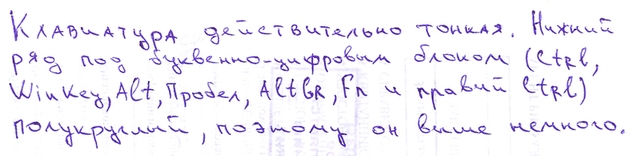 Клавиатура действительно тонкая. Нижний
ряд под буквенно-цифровым блоком (Ctrl,
WinKey, Alt, Пробел, AltGR, Fn и правый Ctrl)
полукруглый, поэтому он выше немного.